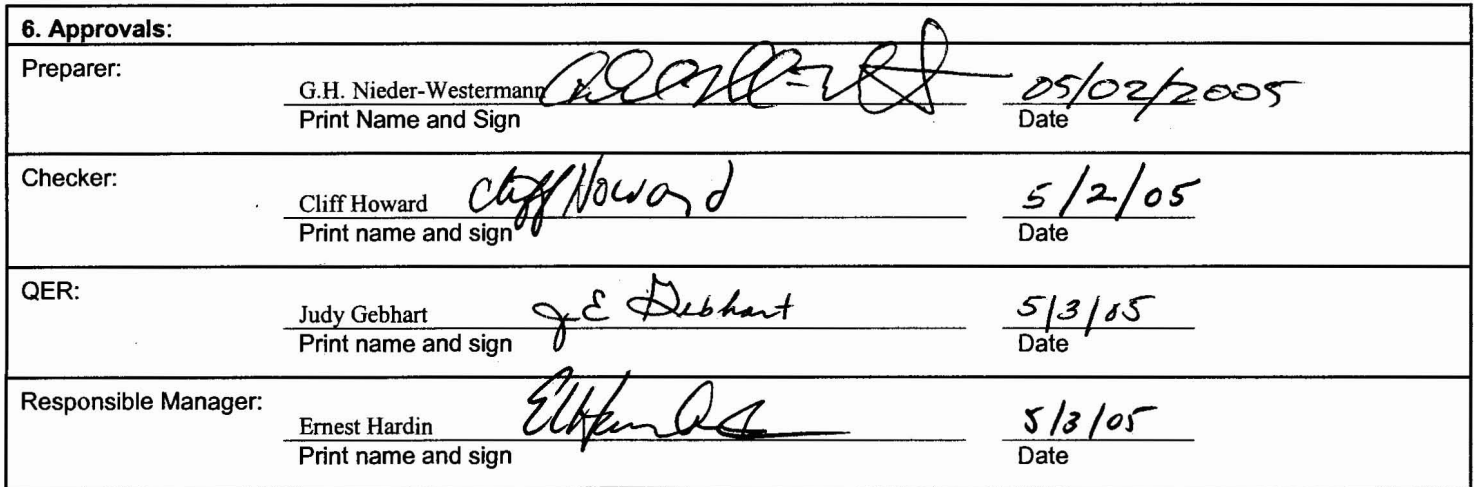 6. Approvals:
Preparer:
G.H. Nieder-Westermann 05/02/2005
Print Name and Sign Date
Checker:
Cliff Howard Cliff Howard 5/2/05
Print name and sign Date
QER:
Judy Gebhart J E Gebhart 5/3/05
Print name and sign Date
Responsible Manager:
Ernest Hardin 5/3/05
Print name and sign Date